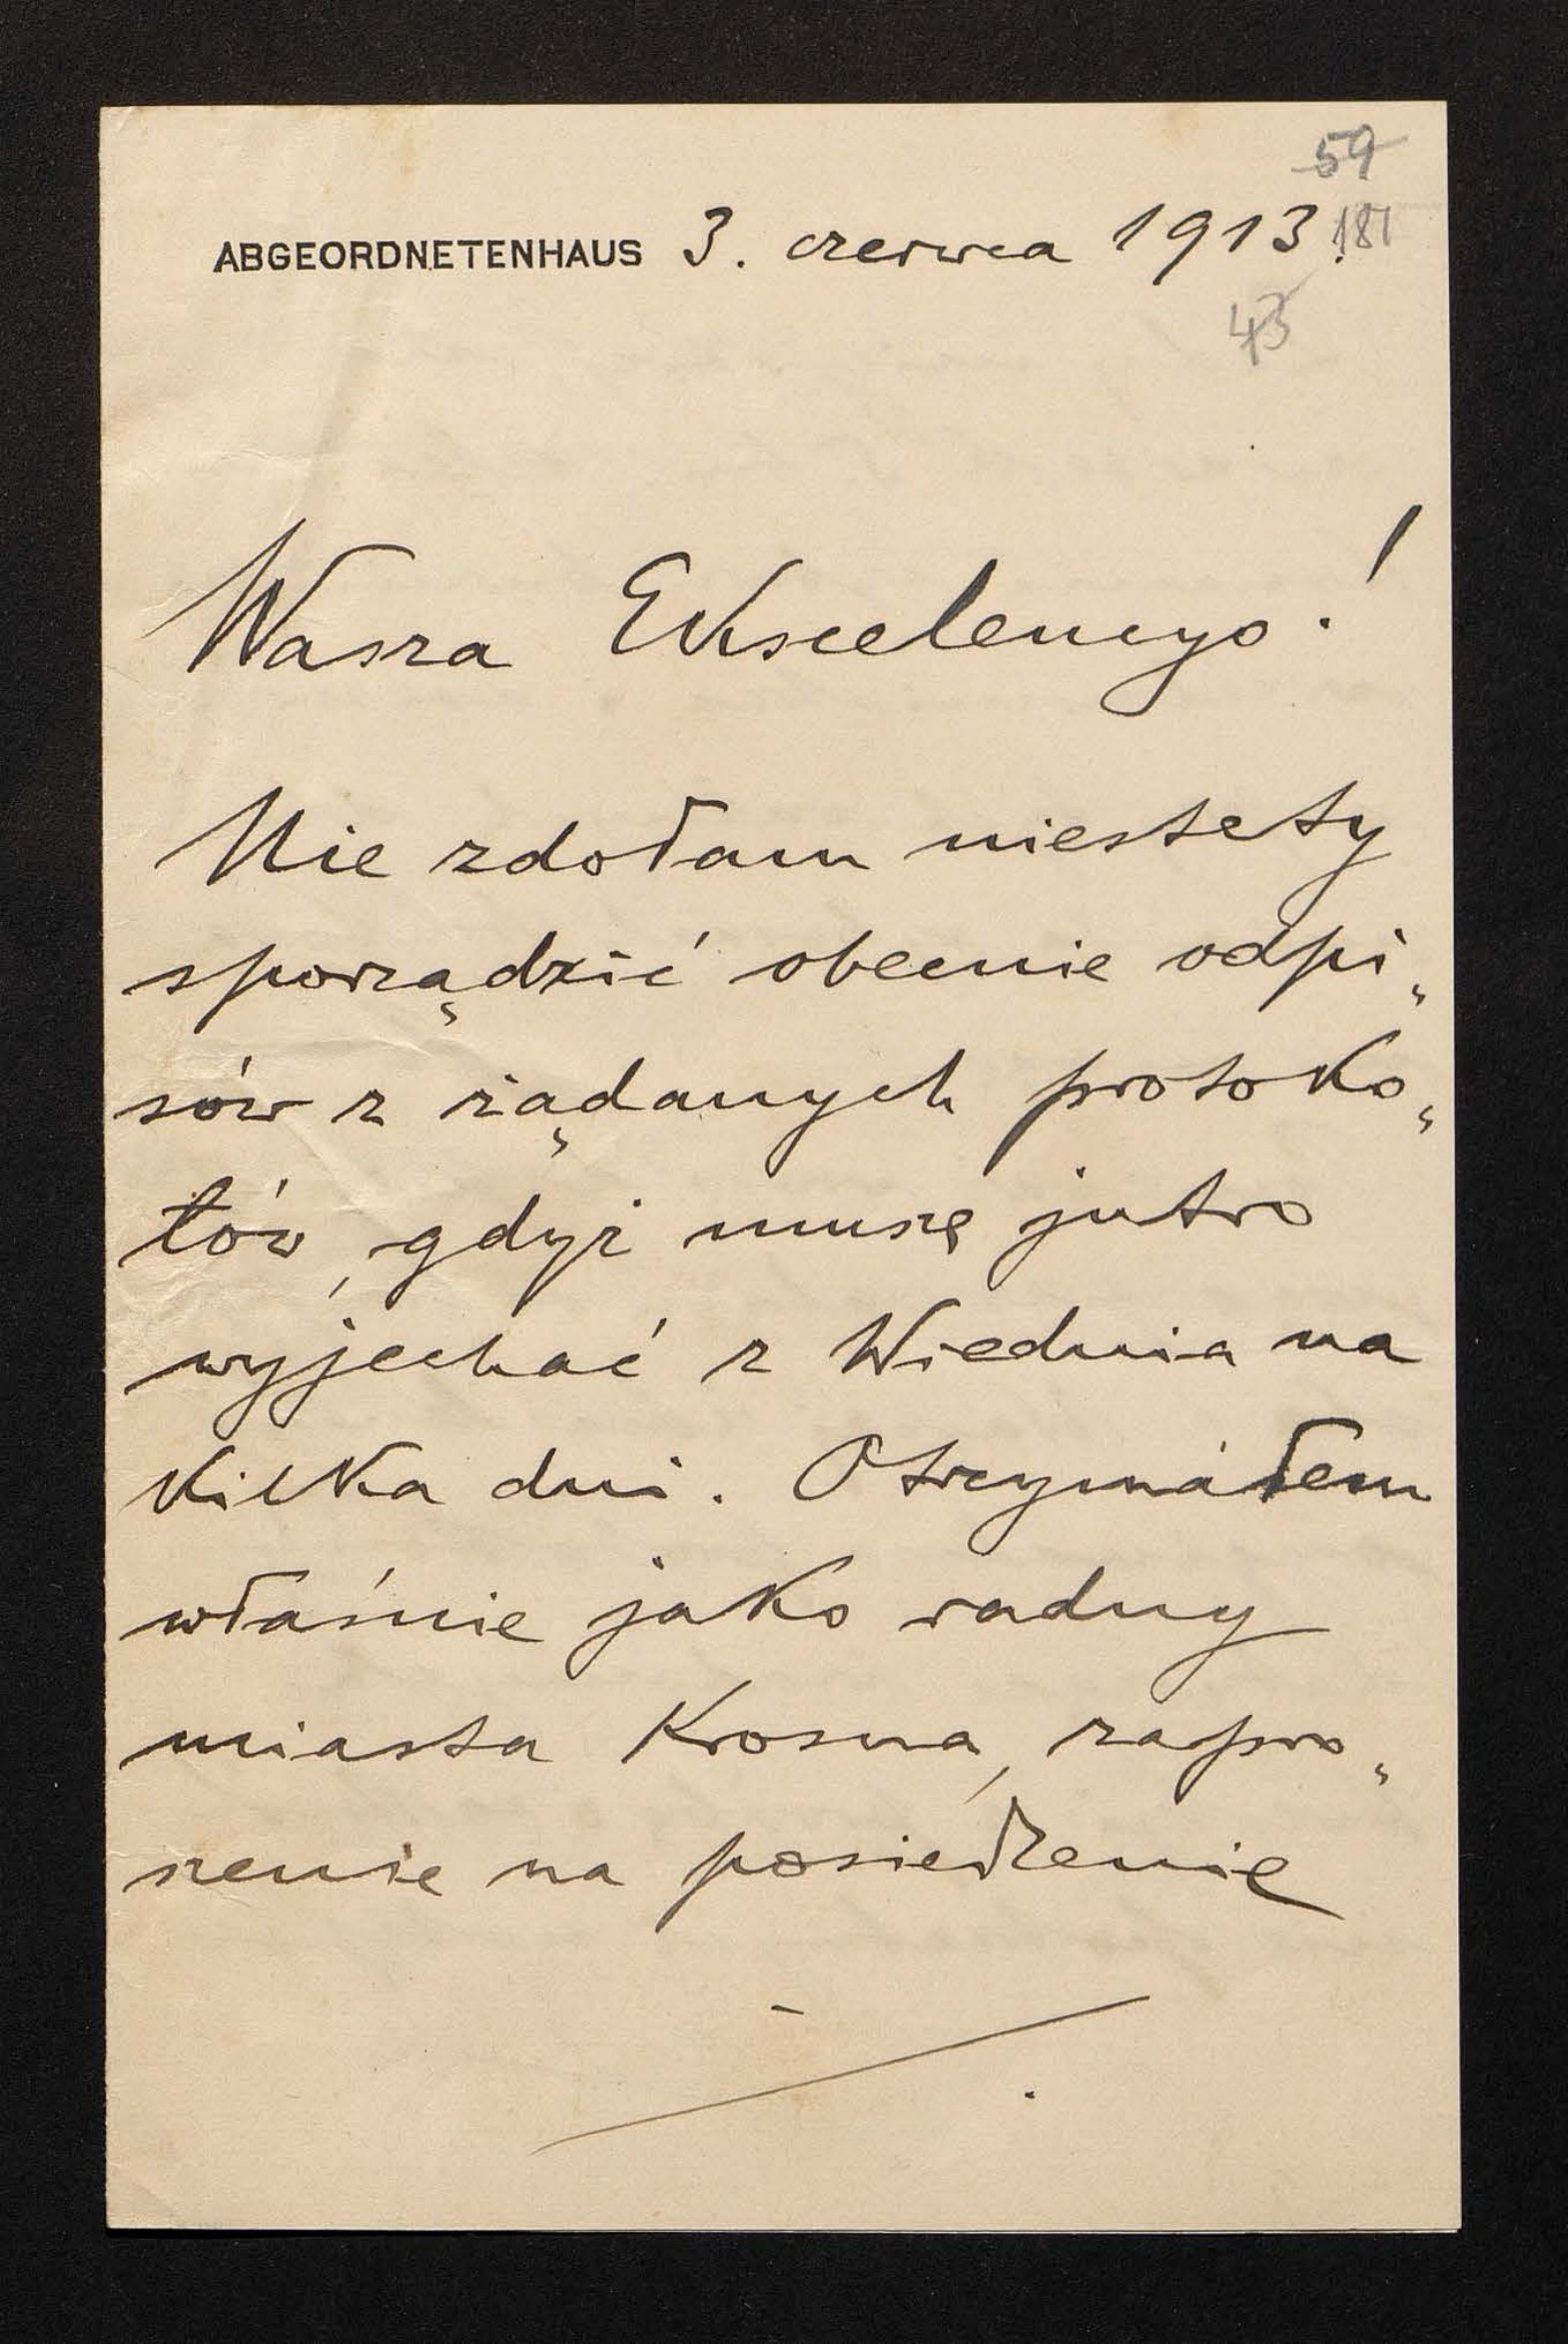 59
ABGEORDNETENHAUS 3. czerwca 1913. 181
43
Wasza Ekscelencyo!
Nie zdołam niestety
sporządzić obecnie odpi„
sów z żądanych protoko„
łów, gdyż muszę jutro
wyjechać z Wiednia na
kilka dni. Otrzymałem
właśnie jako radny
miasta Krosna, zapro„
szenie na posiedzenie